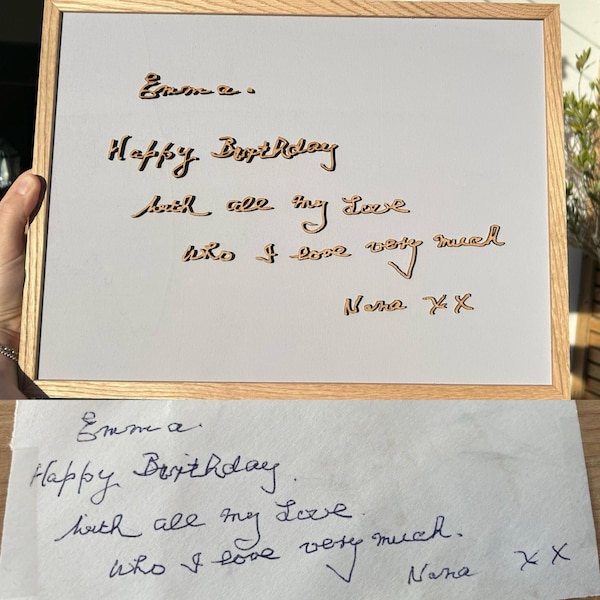 Emma.
Happy Birthday
with all my Love
who I love very much
Nana XX
Emma.
Happy Birthday.
with all my Love.
who I love very much.
Nana XX